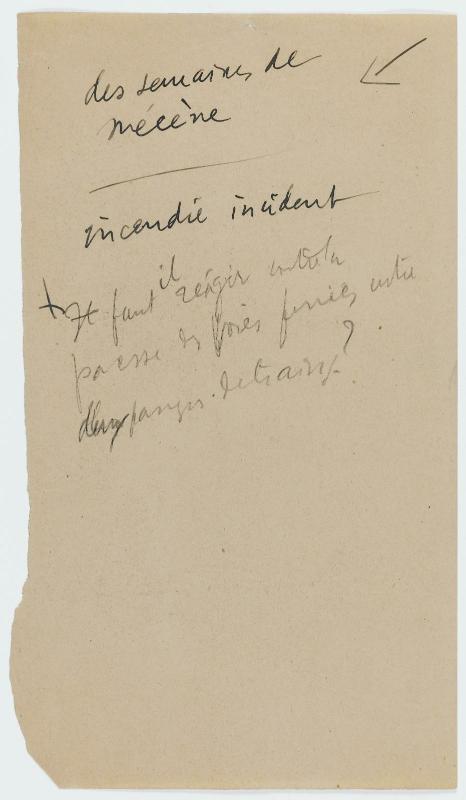 des semaines de
mécène
incendie incident
+ Il faut il réagir contre la
paresse des voies ferrées entre
deux passages de trains ?